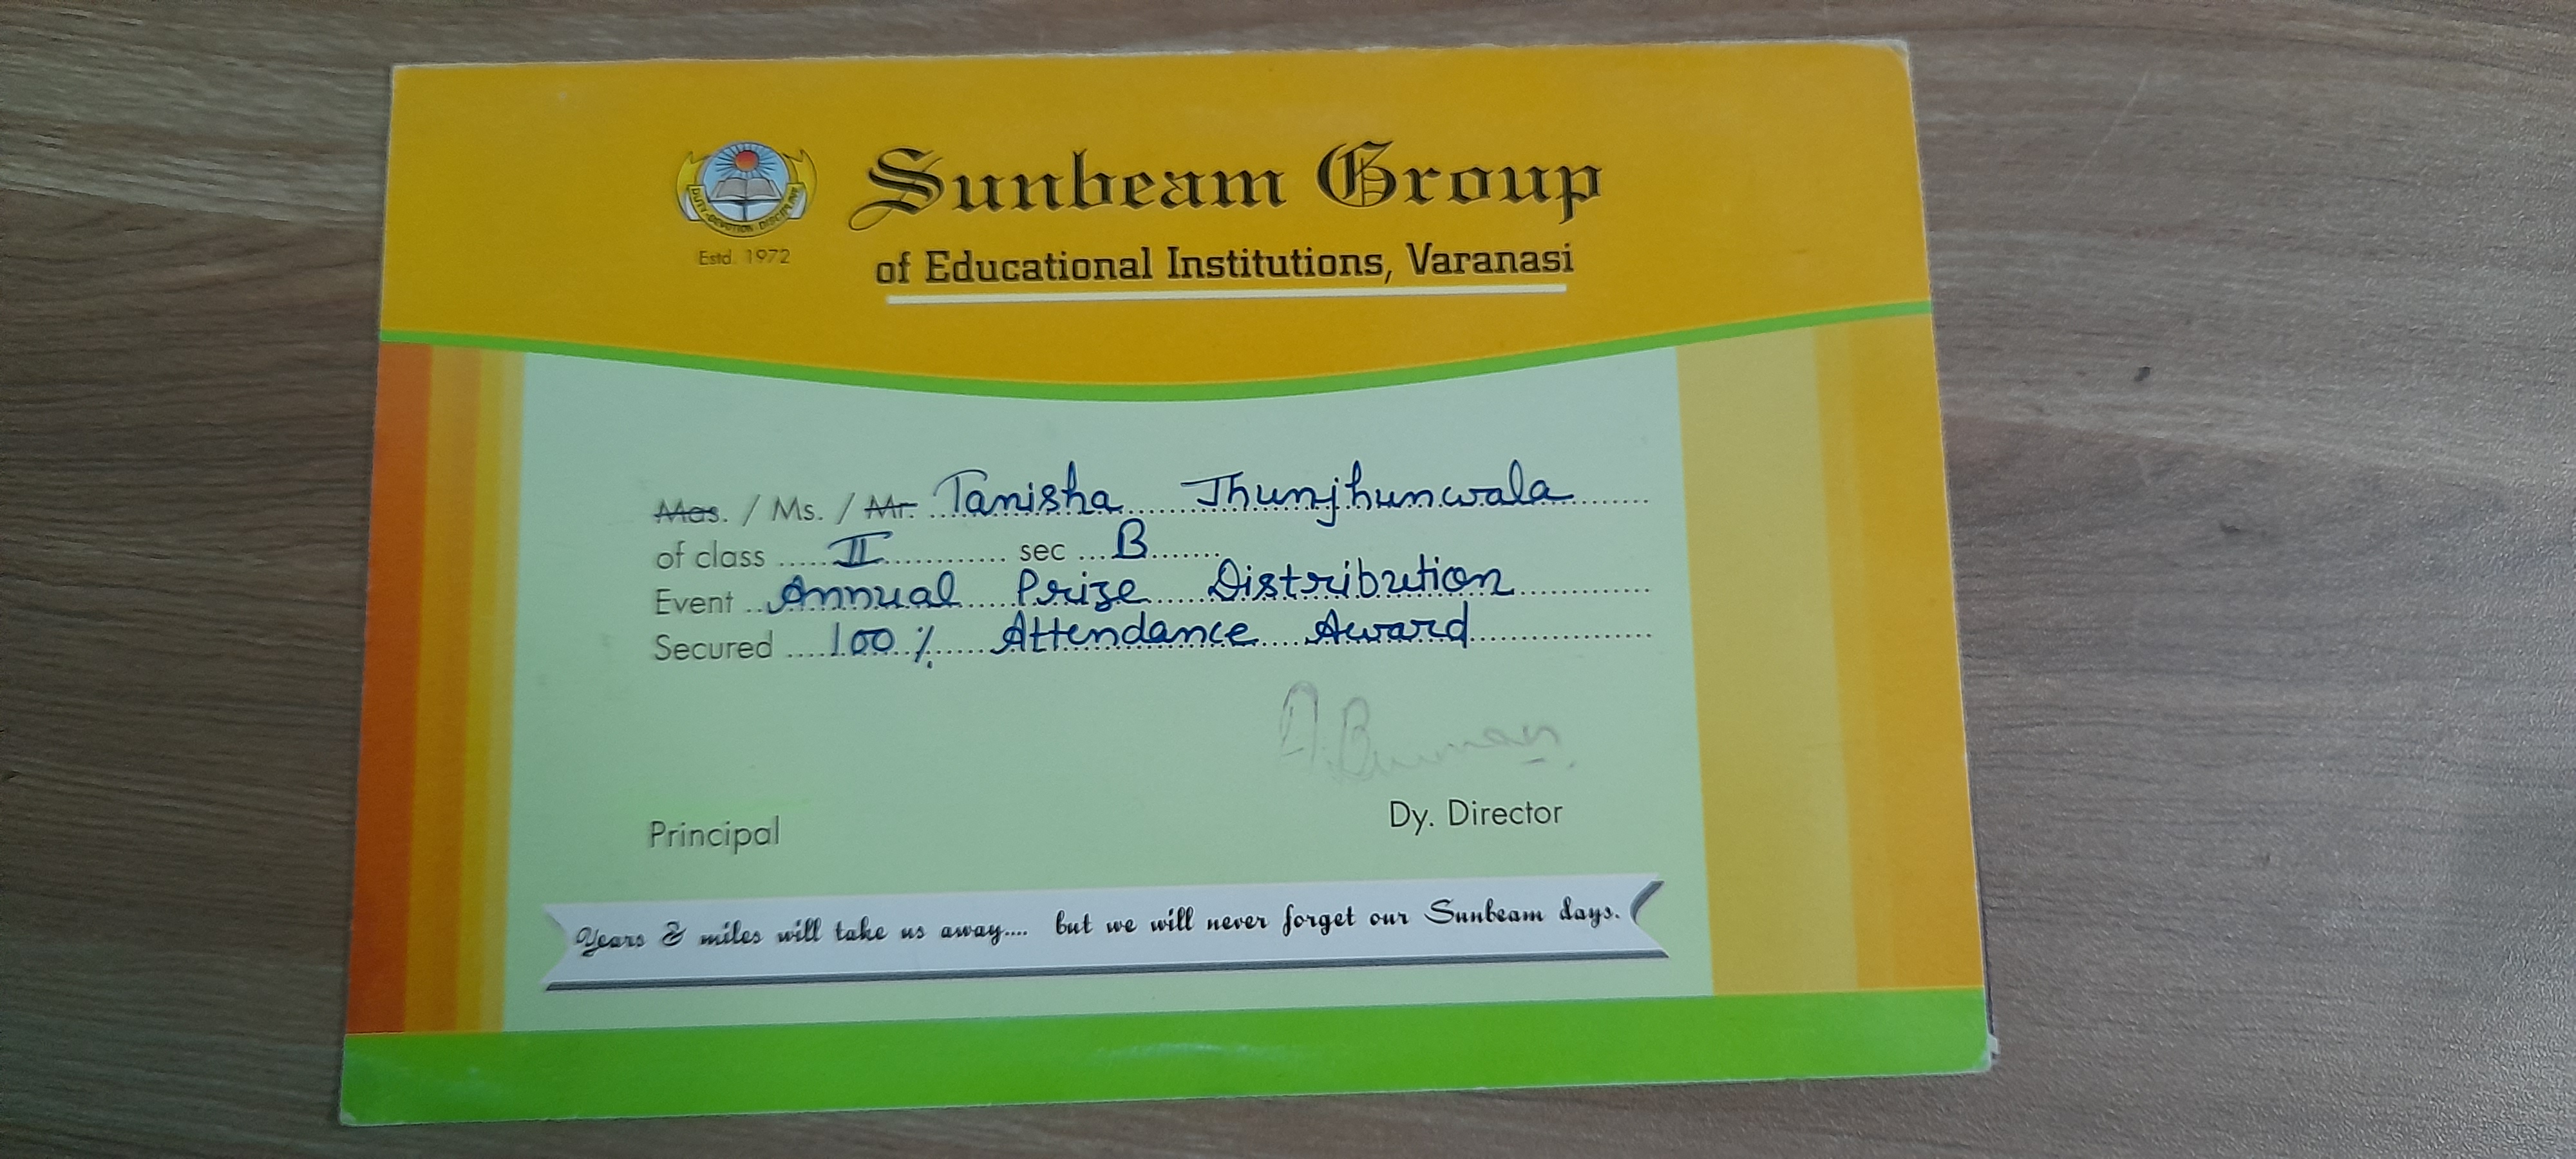 Sunbeam Group
DUTY • DEVOTION • DISCIPLINE
Estd. 1972
of Educational Institutions, Varanasi
Mas. / Ms. / Mr. Tanisha Jhunjhunwala
of class II sec B
Event Annual Prize Distribution
Secured 100% Attendance Award
Principal
Dy. Director
Years & miles will take us away.... but we will never forget our Sunbeam days.